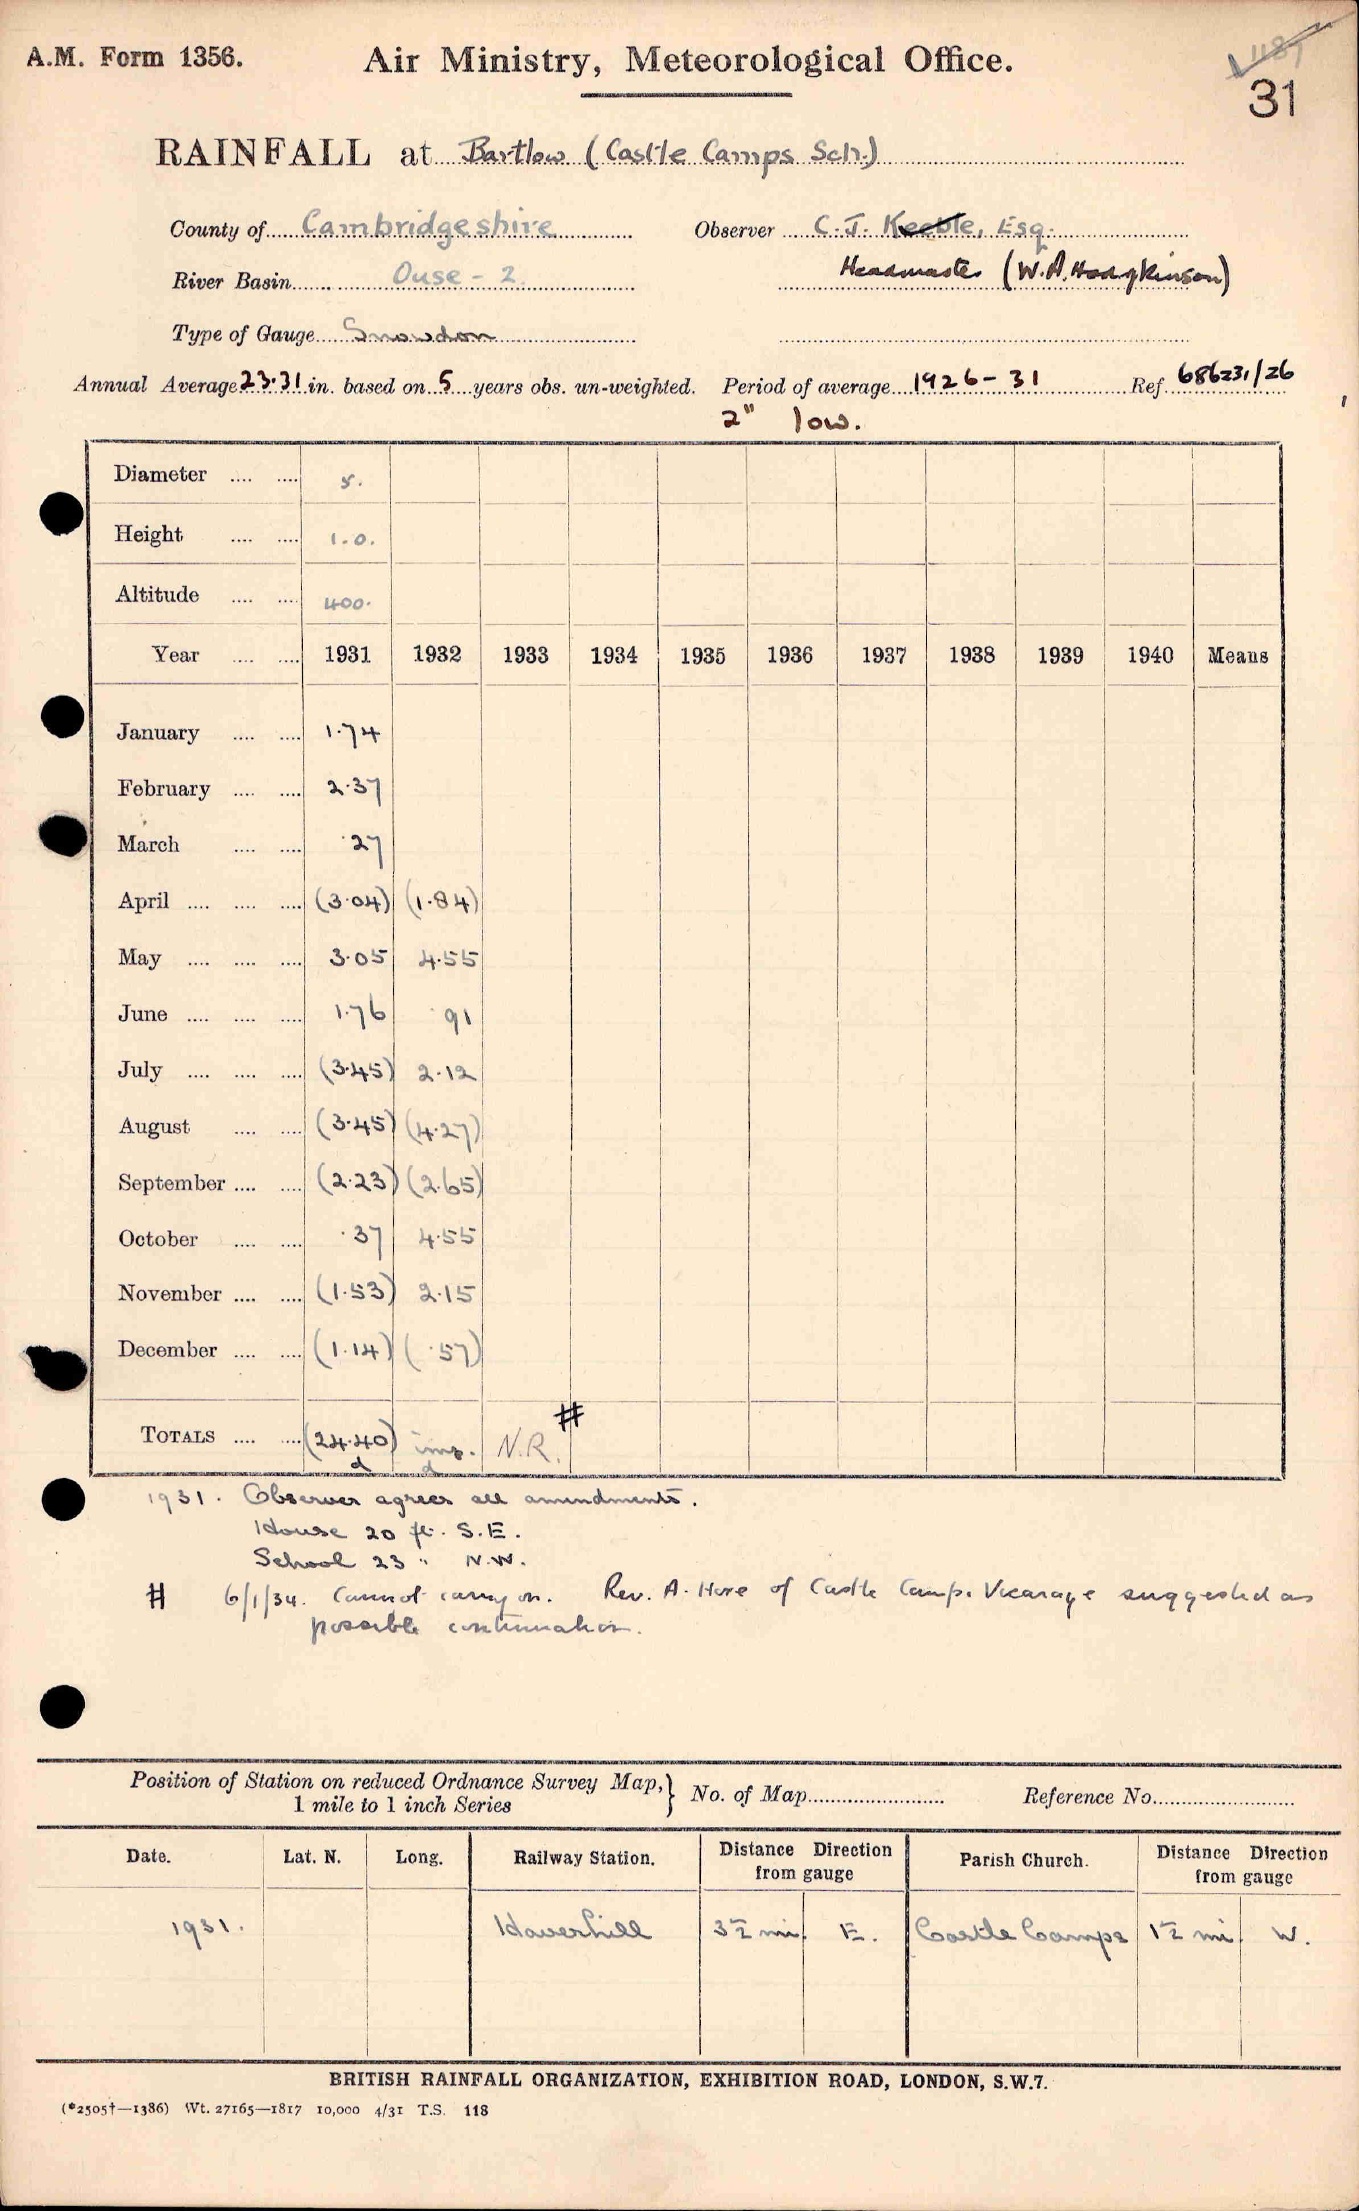 A.M. Form 1356.
Air Ministry, Meteorological Office.
1187
31
RAINFALL at Bartlow (Castle Camps Sch.)
County of Cambridgeshire Observer C. J. Keeble, Esq.
River Basin Ouse - 2. Headmaster (W. A. Hodgkinson)
Type of Gauge Snowdon
Annual Average 23.31 in. based on 5 years obs. un-weighted. Period of average 1926-31 Ref. 686231/26
2" low.
Diameter .... .... 5.
Height .... .... 1.0.
Altitude .... .... 400.
Year .... .... 1931 1932 1933 1934 1935 1936 1937 1938 1939 1940 Means
January .... .... 1.74
February .... .... 2.37
March .... .... .27
April .... .... .... (3.04) (1.84)
May .... .... .... 3.05 4.55
June .... .... .... 1.76 .91
July .... .... .... (3.45) 2.12
August .... .... (3.45) (4.27)
September .... .... (2.23) (2.65)
October .... .... .37 4.55
November .... .... (1.53) 2.15
December .... .... (1.14) (.57)
TOTALS .... .... (24.40) imp. N.R. #
d d
1931. Observer agrees all amendments.
House 20 ft. S.E.
School 23 " N.W.
# 6/1/34. Cannot carry on. Rev. A. Hore of Castle Camps Vicarage suggested as
possible continuation.
Position of Station on reduced Ordnance Survey Map, } No. of Map Reference No.
1 mile to 1 inch Series
Date. Lat. N. Long. Railway Station. Distance Direction from gauge Parish Church. Distance Direction from gauge
1931. Haverhill 3½ mi. E. Castle Camps 1½ mi. W.
BRITISH RAINFALL ORGANIZATION, EXHIBITION ROAD, LONDON, S.W.7.
(*2505†—1386) Wt. 27165—1817 10,000 4/31 T.S. 118